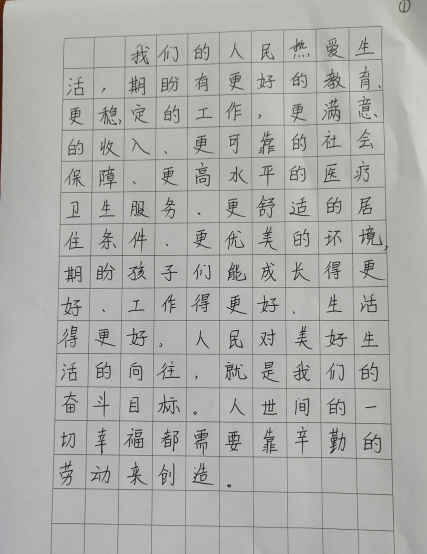 ①
我们的人民热爱生
活，期盼有更好的教育、
更稳定的工作，更满意
的收入、更可靠的社会
保障、更高水平的医疗
卫生服务、更舒适的居
住条件、更优美的环境，
期盼孩子们能成长得更
好、工作得更好、生活
得更好。人民对美好生
活的向往，就是我们的
奋斗目标。人世间的一
切幸福都需要靠辛勤的
劳动来创造。